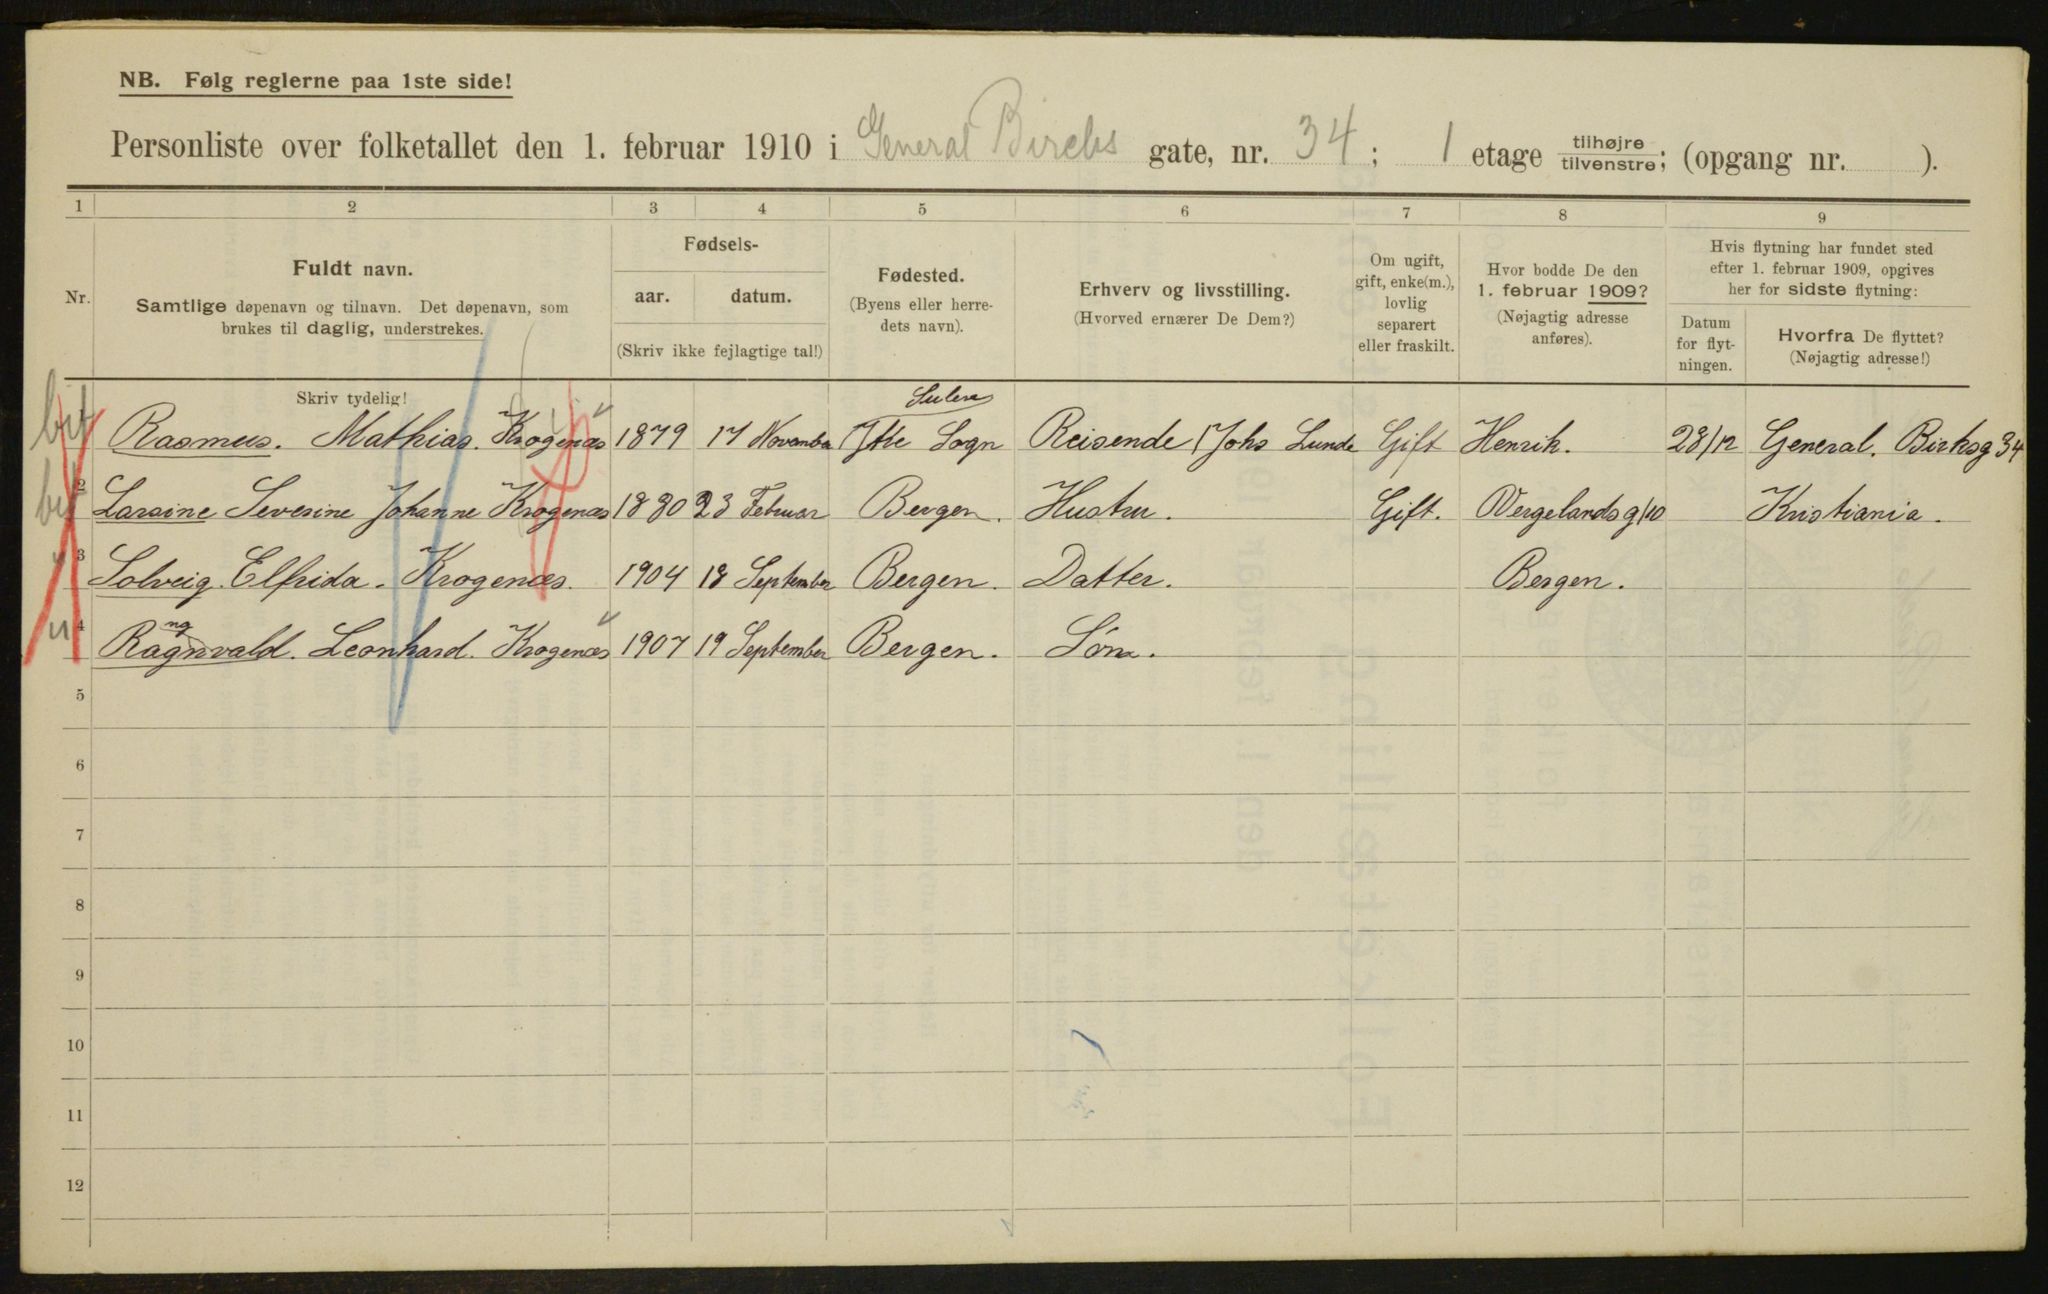 NB. Følg reglerne paa 1ste side!
Personliste over folketallet den 1. februar 1910 i General Birchs gate, nr. 34 ; 1 etage tilhøjre tilvenstre; (opgang nr. ).
1 2 3 4 5 6 7 8 9
Nr.
Fuldt navn.
Samtlige døpenavn og tilnavn. Det døpenavn, som
brukes til daglig, understrekes.
Fødsels-
aar. datum.
(Skriv ikke fejlagtige tal!)
Fødested.
(Byens eller herre-
dets navn).
Erhverv og livsstilling.
(Hvorved ernærer De Dem?)
Om ugift,
gift, enke(m.),
lovlig
separert
eller fraskilt.
Hvor bodde De den
1. februar 1909?
(Nøjagtig adresse
anføres).
Hvis flytning har fundet sted
efter 1. februar 1909, opgives
her for sidste flytning:
Datum
for flyt-
ningen.
Hvorfra De flyttet?
(Nøjagtig adresse!)
Skriv tydelig!
Sulen
Rasmus. Mathias. Krogenæs 1879 17 Novamber Ytre Sogn Reisende Johs Lunde Gift Henrik. 28/12 General. Birksg 34
2 Larsine Severine Johanne Krogenæs 1880 23 Februar Bergen. Hustru. Gift. Vergelandsg/10 Kristiania.
3 Solveig. Elfrida. Krogenæs. 1904 18 September Bergen. Datter. Bergen.
ng
4 Ragnvald. Leonhard. Krogenæs 1907 19 September Bergen. Sön.
5
6
7
8
9
10
11
12